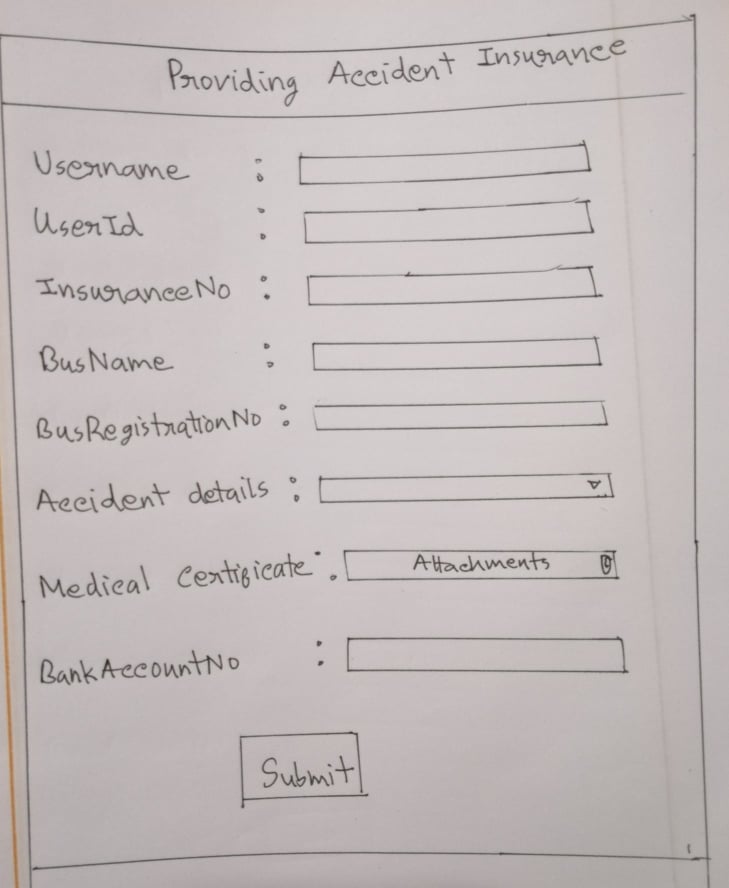 Providing Accident Insurance
Username :
UserId :
InsuranceNo :
BusName :
BusRegistrationNo :
Accident details :
Medical Certificate : Attachments
BankAccountNo :
Submit